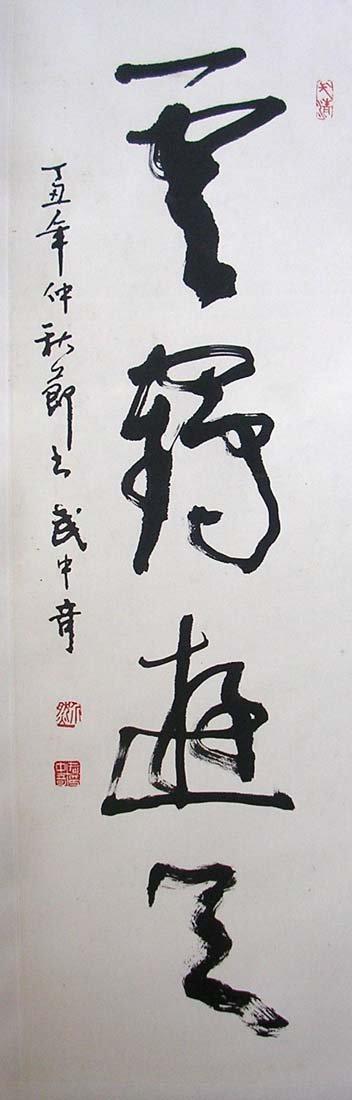 雲鶴遊天
丁丑年仲秋節書 武中奇